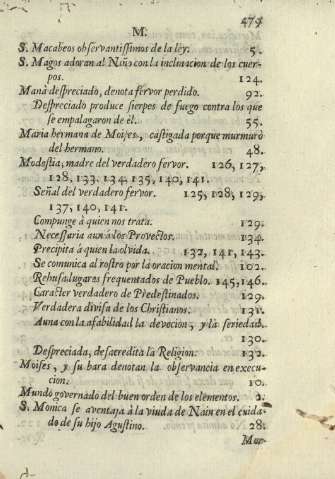 479
M.
S. Macabeos observantissimos de la ley. 5.
S. Magos adoran al Niño con la inclinacion de los cuer-
pos. 124.
Manà despreciado, denota fervor perdido. 92.
Despreciado produce sierpes de fuego contra los que
se empalagaron de èl. 55.
Maria hermana de Moises, castigada porque murmurò
del hermano. 48.
Modestia, madre del verdadero fervor. 126, 127,
128, 133. 134. 135, 140, 141.
Señal del verdadero fervor. 125, 128, 129,
137, 140, 141.
Compunge à quien nos trata. 129.
Necessaria aun à los Provectos. 134.
Precipita à quien la olvida. 132, 141, 143.
Se comunica al rostro por la oracion mental. 102.
Rehusa lugares frequentados de Pueblo. 145, 146.
Caracter verdadero de Predestinados. 129.
Verdadera divisa de los Christianos. 131.
Auna con la afabilidad la devocion, y là seriedad.
130.
Despreciada, desacredita la Religion. 132.
Moises, y su bara denotan la observancia en execu-
cion. 10.
Mundo governado del buen orden de los elementos. 2.
S. Monica se aventaja à la viuda de Nain en el cuida-
do de su hijo Agustino. 28.
Mur-